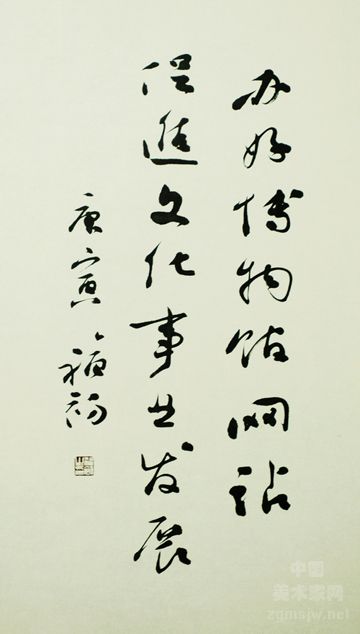 办好博物馆网站
促進文化事业发展
庚寅
中国
美术家网
zgmsjw.net